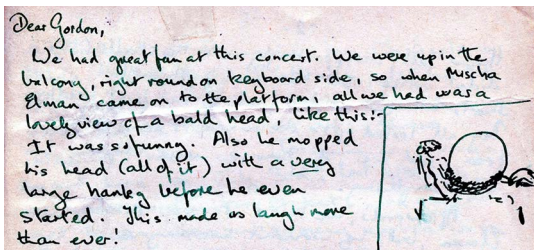 Dear Gordon,
We had great fun at this concert. We were up in the
balcony, right round on keyboard side, so when Mischa
Elman came on to the platform, all we had was a
lovely view of a bald head, like this:-
It was so funny. Also he mopped
his head (all of it) with a very
large hanky before he even
started. This made us laugh more
than ever!